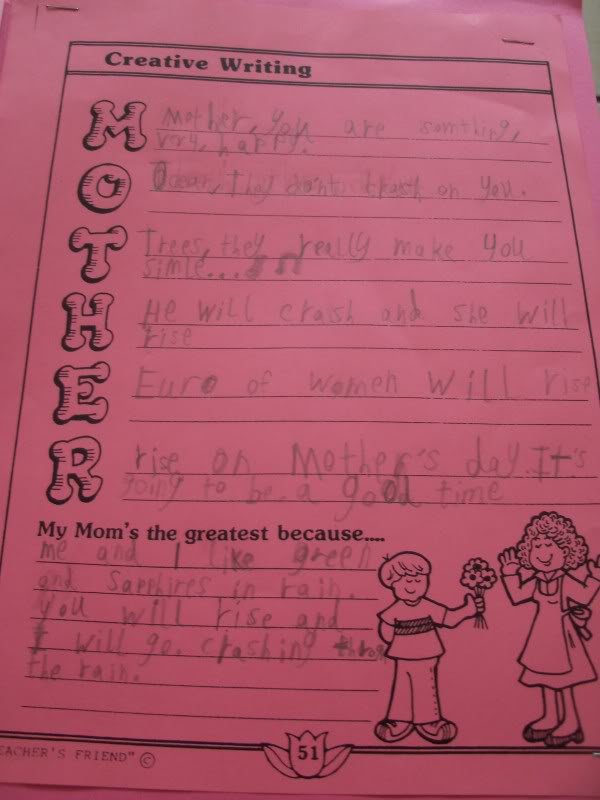 Creative Writing
M Mother, you are somthing,
very, happy.
O Ocean, they don'nto crash on you.
T Trees, they really make you
simle...
H He will crash and she will
rise
E Euro of women will rise
R rise on Mother's day. It's
going to be a good time
My Mom's the greatest because....
me and I like green
and sapphires in rain.
you will rise and
I will go crashing throw
the rain.
EACHER'S FRIEND" ©
51